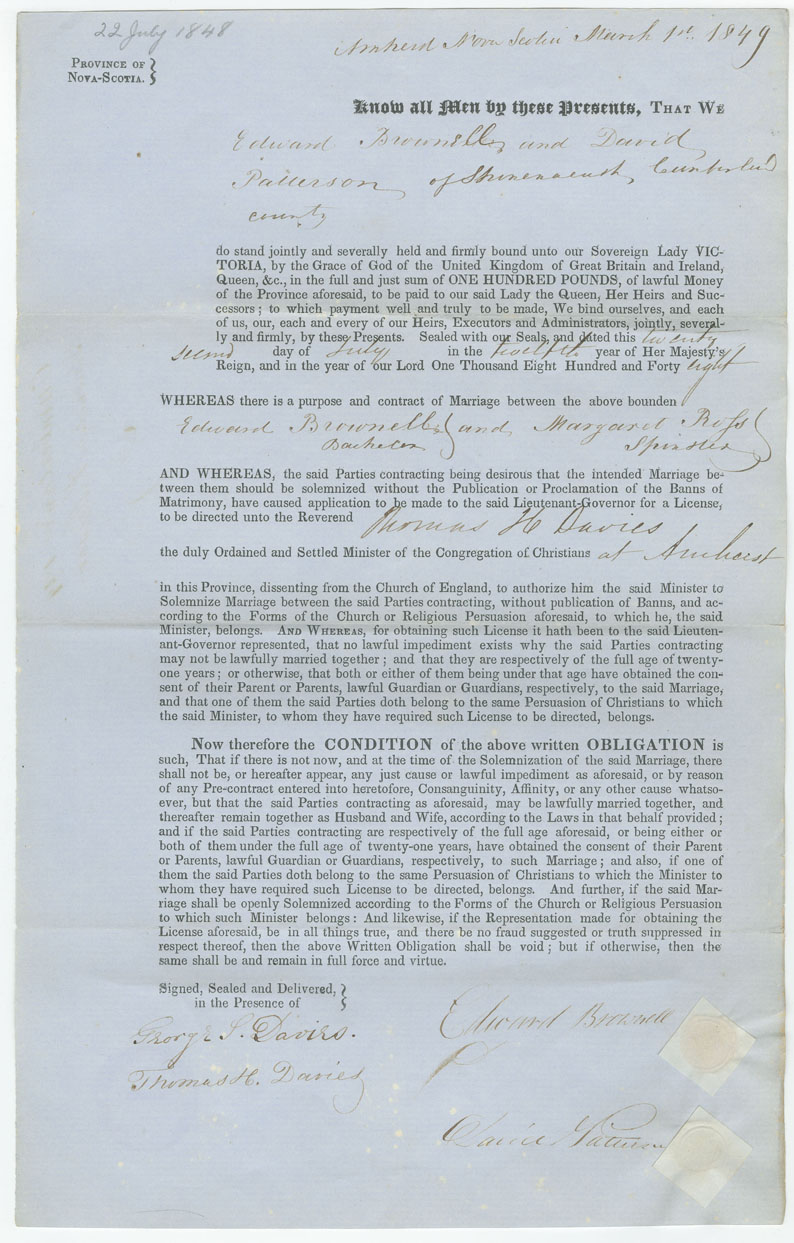 22 July 1848
Amherst Nova Scotia March 1st. 1849
PROVINCE OF
NOVA-SCOTIA.
Know all Men by these Presents, THAT WE
Edward Brownell and David
Patterson of Cumberland
county
do stand jointly and severally held and firmly bound unto our Sovereign Lady VIC-
TORIA, by the Grace of God of the United Kingdom of Great Britain and Ireland,
Queen, &c., in the full and just sum of ONE HUNDRED POUNDS, of lawful Money
of the Province aforesaid, to be paid to our said Lady the Queen, Her Heirs and Suc-
cessors; to which payment well and truly to be made, We bind ourselves, and each
of us, our, each and every of our Heirs, Executors and Administrators, jointly, several-
ly and firmly, by these Presents. Sealed with our Seals, and dated this twenty
second day of July in the twelfth year of Her Majesty's
Reign, and in the year of our Lord One Thousand Eight Hundred and Forty eight
WHEREAS there is a purpose and contract of Marriage between the above bounden
Edward Brownell and Margaret Ross
Bachelor Spinster
AND WHEREAS, the said Parties contracting being desirous that the intended Marriage be-
tween them should be solemnized without the Publication or Proclamation of the Banns of
Matrimony, have caused application to be made to the said Lieutenant-Governor for a License,
to be directed unto the Reverend Thomas H Davies
the duly Ordained and Settled Minister of the Congregation of Christians at Amherst
in this Province, dissenting from the Church of England, to authorize him the said Minister to
Solemnize Marriage between the said Parties contracting, without publication of Banns, and ac-
cording to the Forms of the Church or Religious Persuasion aforesaid, to which he, the said
Minister, belongs. AND WHEREAS, for obtaining such License it hath been to the said Lieuten-
ant-Governor represented, that no lawful impediment exists why the said Parties contracting
may not be lawfully married together; and that they are respectively of the full age of twenty-
one years; or otherwise, that both or either of them being under that age have obtained the con-
sent of their Parent or Parents, lawful Guardian or Guardians, respectively, to the said Marriage,
and that one of them the said Parties doth belong to the same Persuasion of Christians to which
the said Minister, to whom they have required such License to be directed, belongs.
Now therefore the CONDITION of the above written OBLIGATION is
such, That if there is not now, and at the time of the Solemnization of the said Marriage, there
shall not be, or hereafter appear, any just cause or lawful impediment as aforesaid, or by reason
of any Pre-contract entered into heretofore, Consanguinity, Affinity, or any other cause whatso-
ever, but that the said Parties contracting as aforesaid, may be lawfully married together, and
thereafter remain together as Husband and Wife, according to the Laws in that behalf provided;
and if the said Parties contracting are respectively of the full age aforesaid, or being either or
both of them under the full age of twenty-one years, have obtained the consent of their Parent
or Parents, lawful Guardian or Guardians, respectively, to such Marriage; and also, if one of
them the said Parties doth belong to the same Persuasion of Christians to which the Minister to
whom they have required such License to be directed, belongs. And further, if the said Mar-
riage shall be openly Solemnized according to the Forms of the Church or Religious Persuasion
to which such Minister belongs: And likewise, if the Representation made for obtaining the
License aforesaid, be in all things true, and there be no fraud suggested or truth suppressed in
respect thereof, then the above Written Obligation shall be void; but if otherwise, then the
same shall be and remain in full force and virtue.
Signed, Sealed and Delivered,
in the Presence of
George S. Davies.
Thomas H. Davies
Edward Brownell
David Patterson